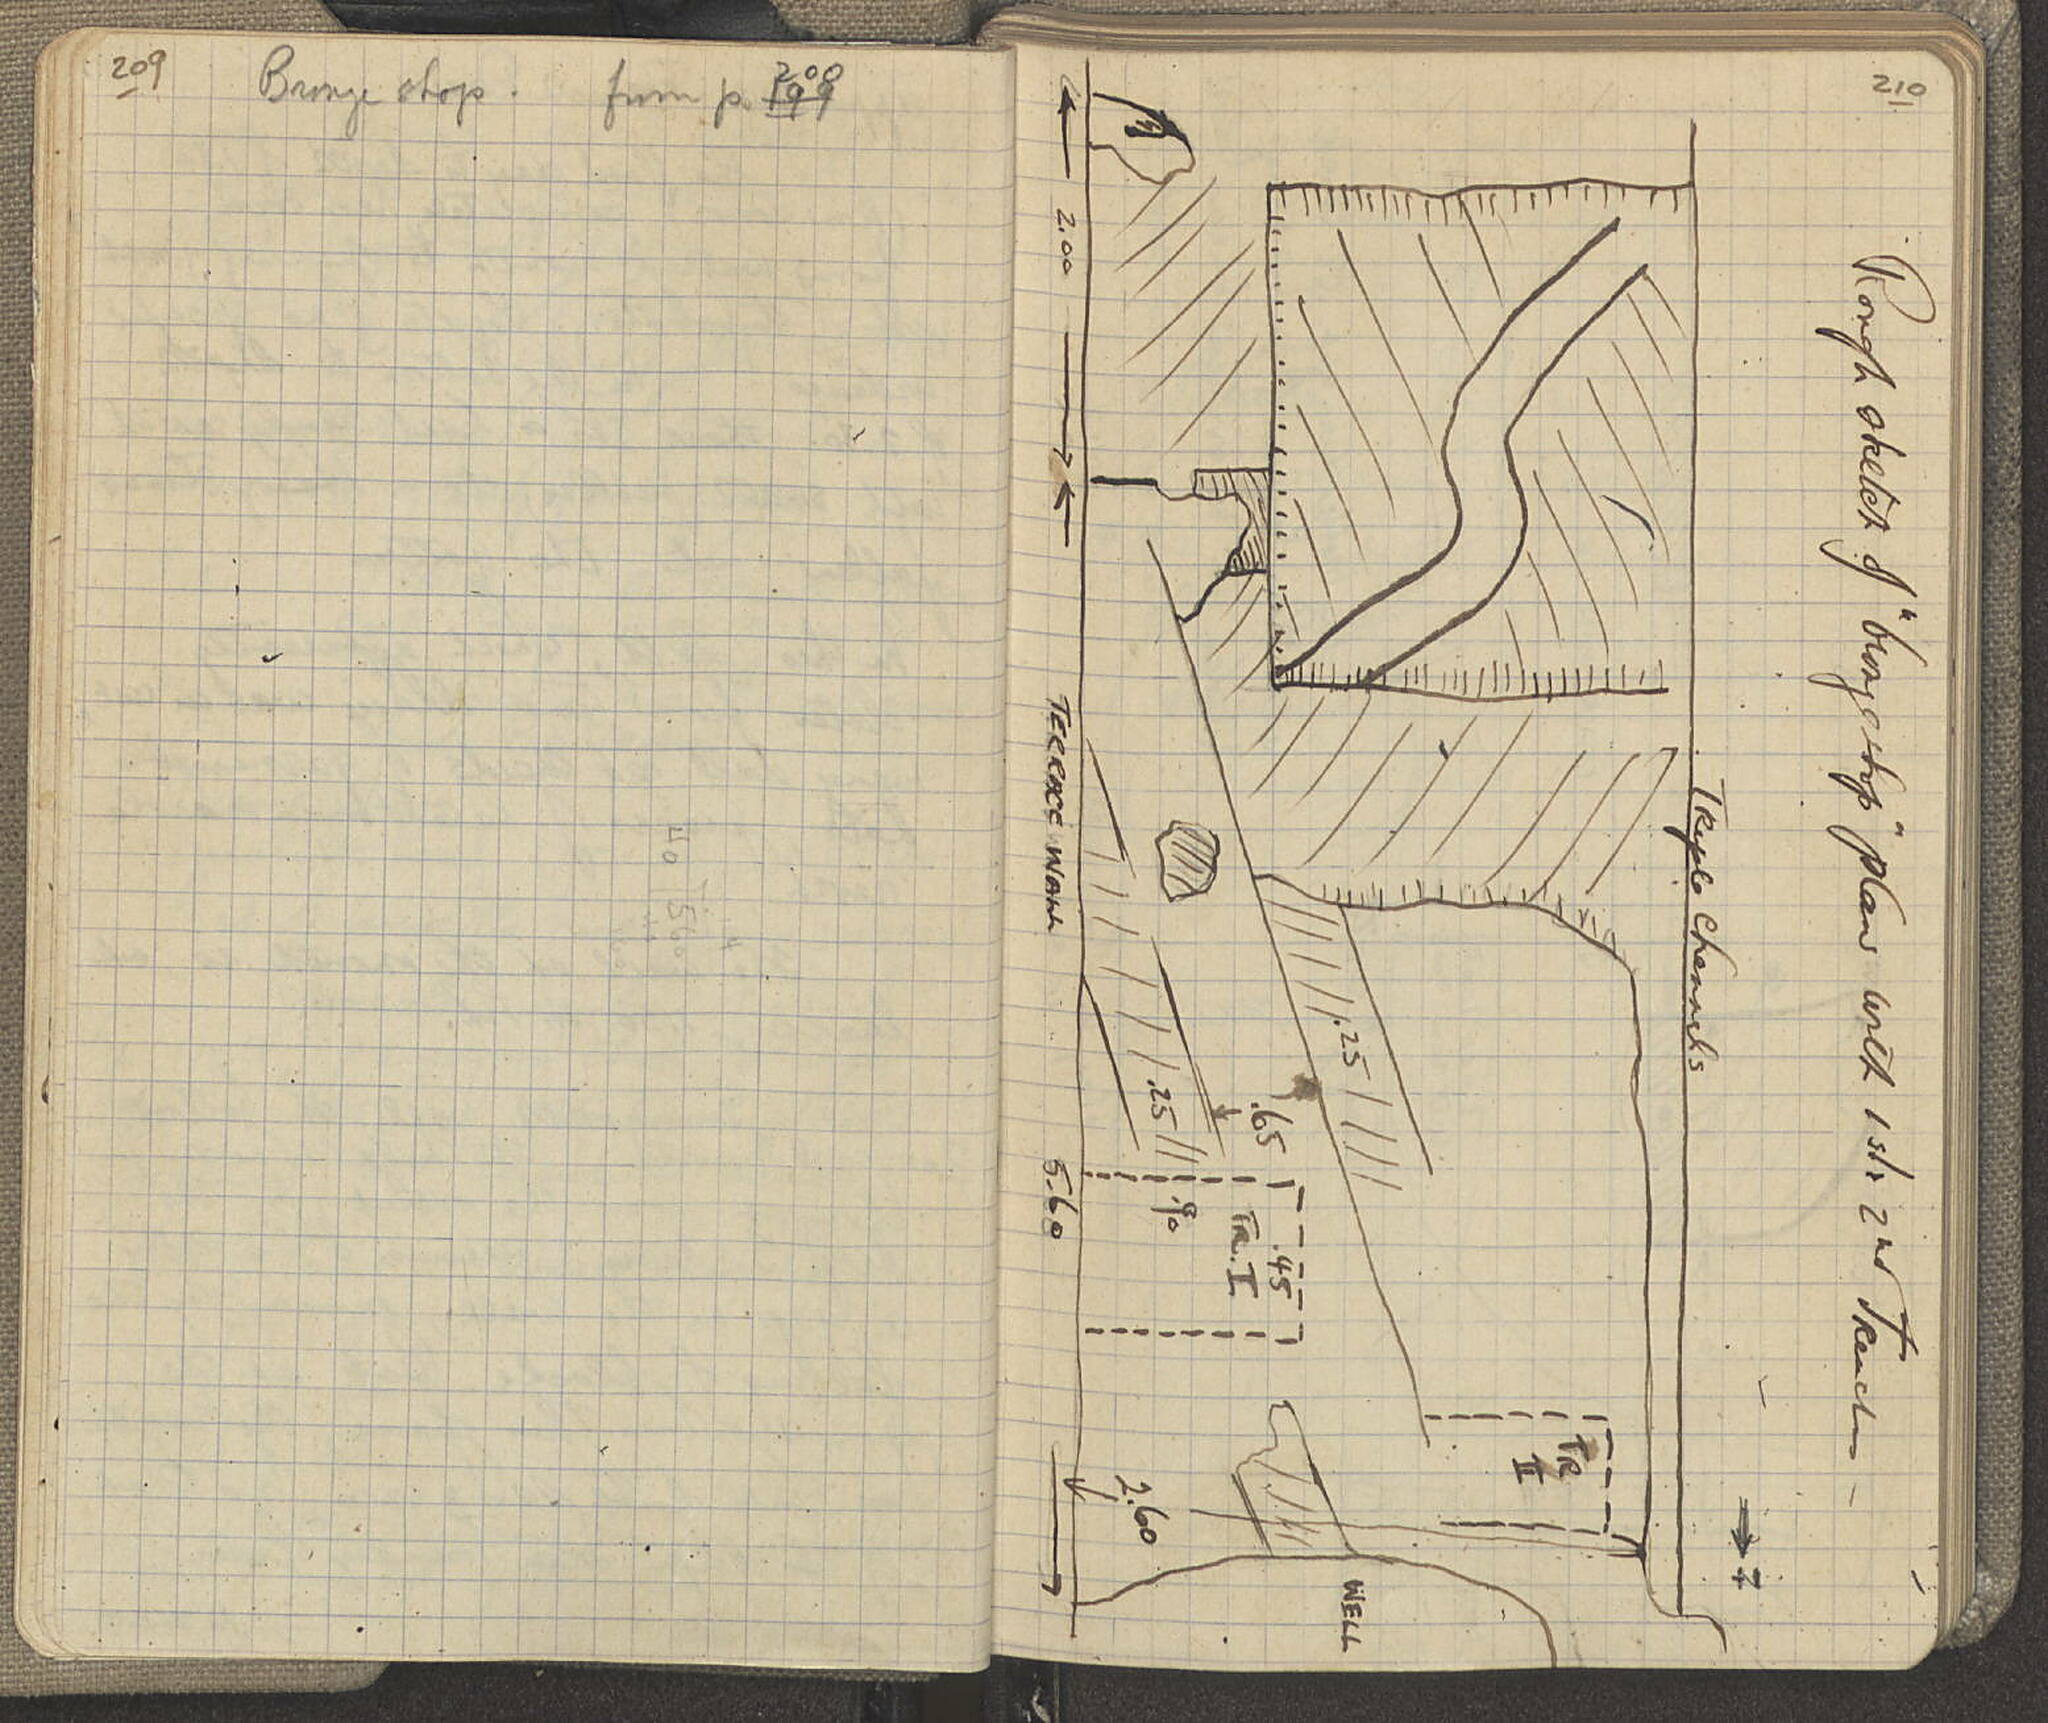 209
Bronze shop. from p. 199 200
210
Rough sketch of "bronze shop" plan with 1st. 2nd Trench
Triple Channels
2.00
TERRACE WALL
5.60
.25
.25
.65
.90
TR. I
.45
TR II
2.60
WELL